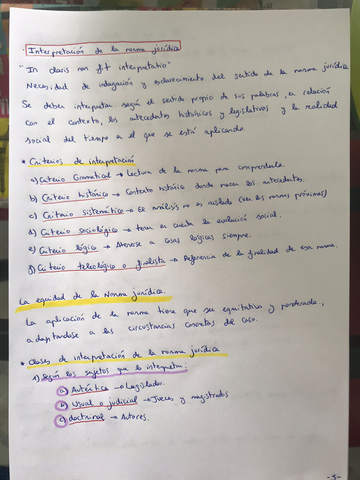 Interpretación de la norma jurídica
"In claris non fit interpretatio"
Necesidad de indagación y esclarecimiento del sentido de la norma jurídica
Se deben interpretar según el sentido propio de sus palabras, en relación
con el contexto, los antecedentes históricos y legislativos y la realidad
social del tiempo a el que se está aplicando.
* Criterios de interpretación
a) Criterio Gramatical → Lectura de la norma para comprenderla.
b) Criterio histórico → Contexto histórico donde nacen los antecedentes.
c) Criterio sistemático → El análisis no es aislado (ver las normas próximas)
d) Criterio sociológico → tener en cuenta la evolución social.
e) Criterio lógico → Atenerse a cosas lógicas siempre.
f) Criterio teleológico o finalista → Referencia de la finalidad de esa norma.
La equidad de la Norma jurídica.
La aplicación de la norma tiene que ser equitativa y ponderada,
adaptandose a las circunstancias concretas del caso.
* Clases de interpretación de la norma jurídica
1) Según los sujetos que la interpretan:
a) Auténtica → Legislador.
b) Usual o judicial → Jueces y magistrados
c) doctrinal → Autores.